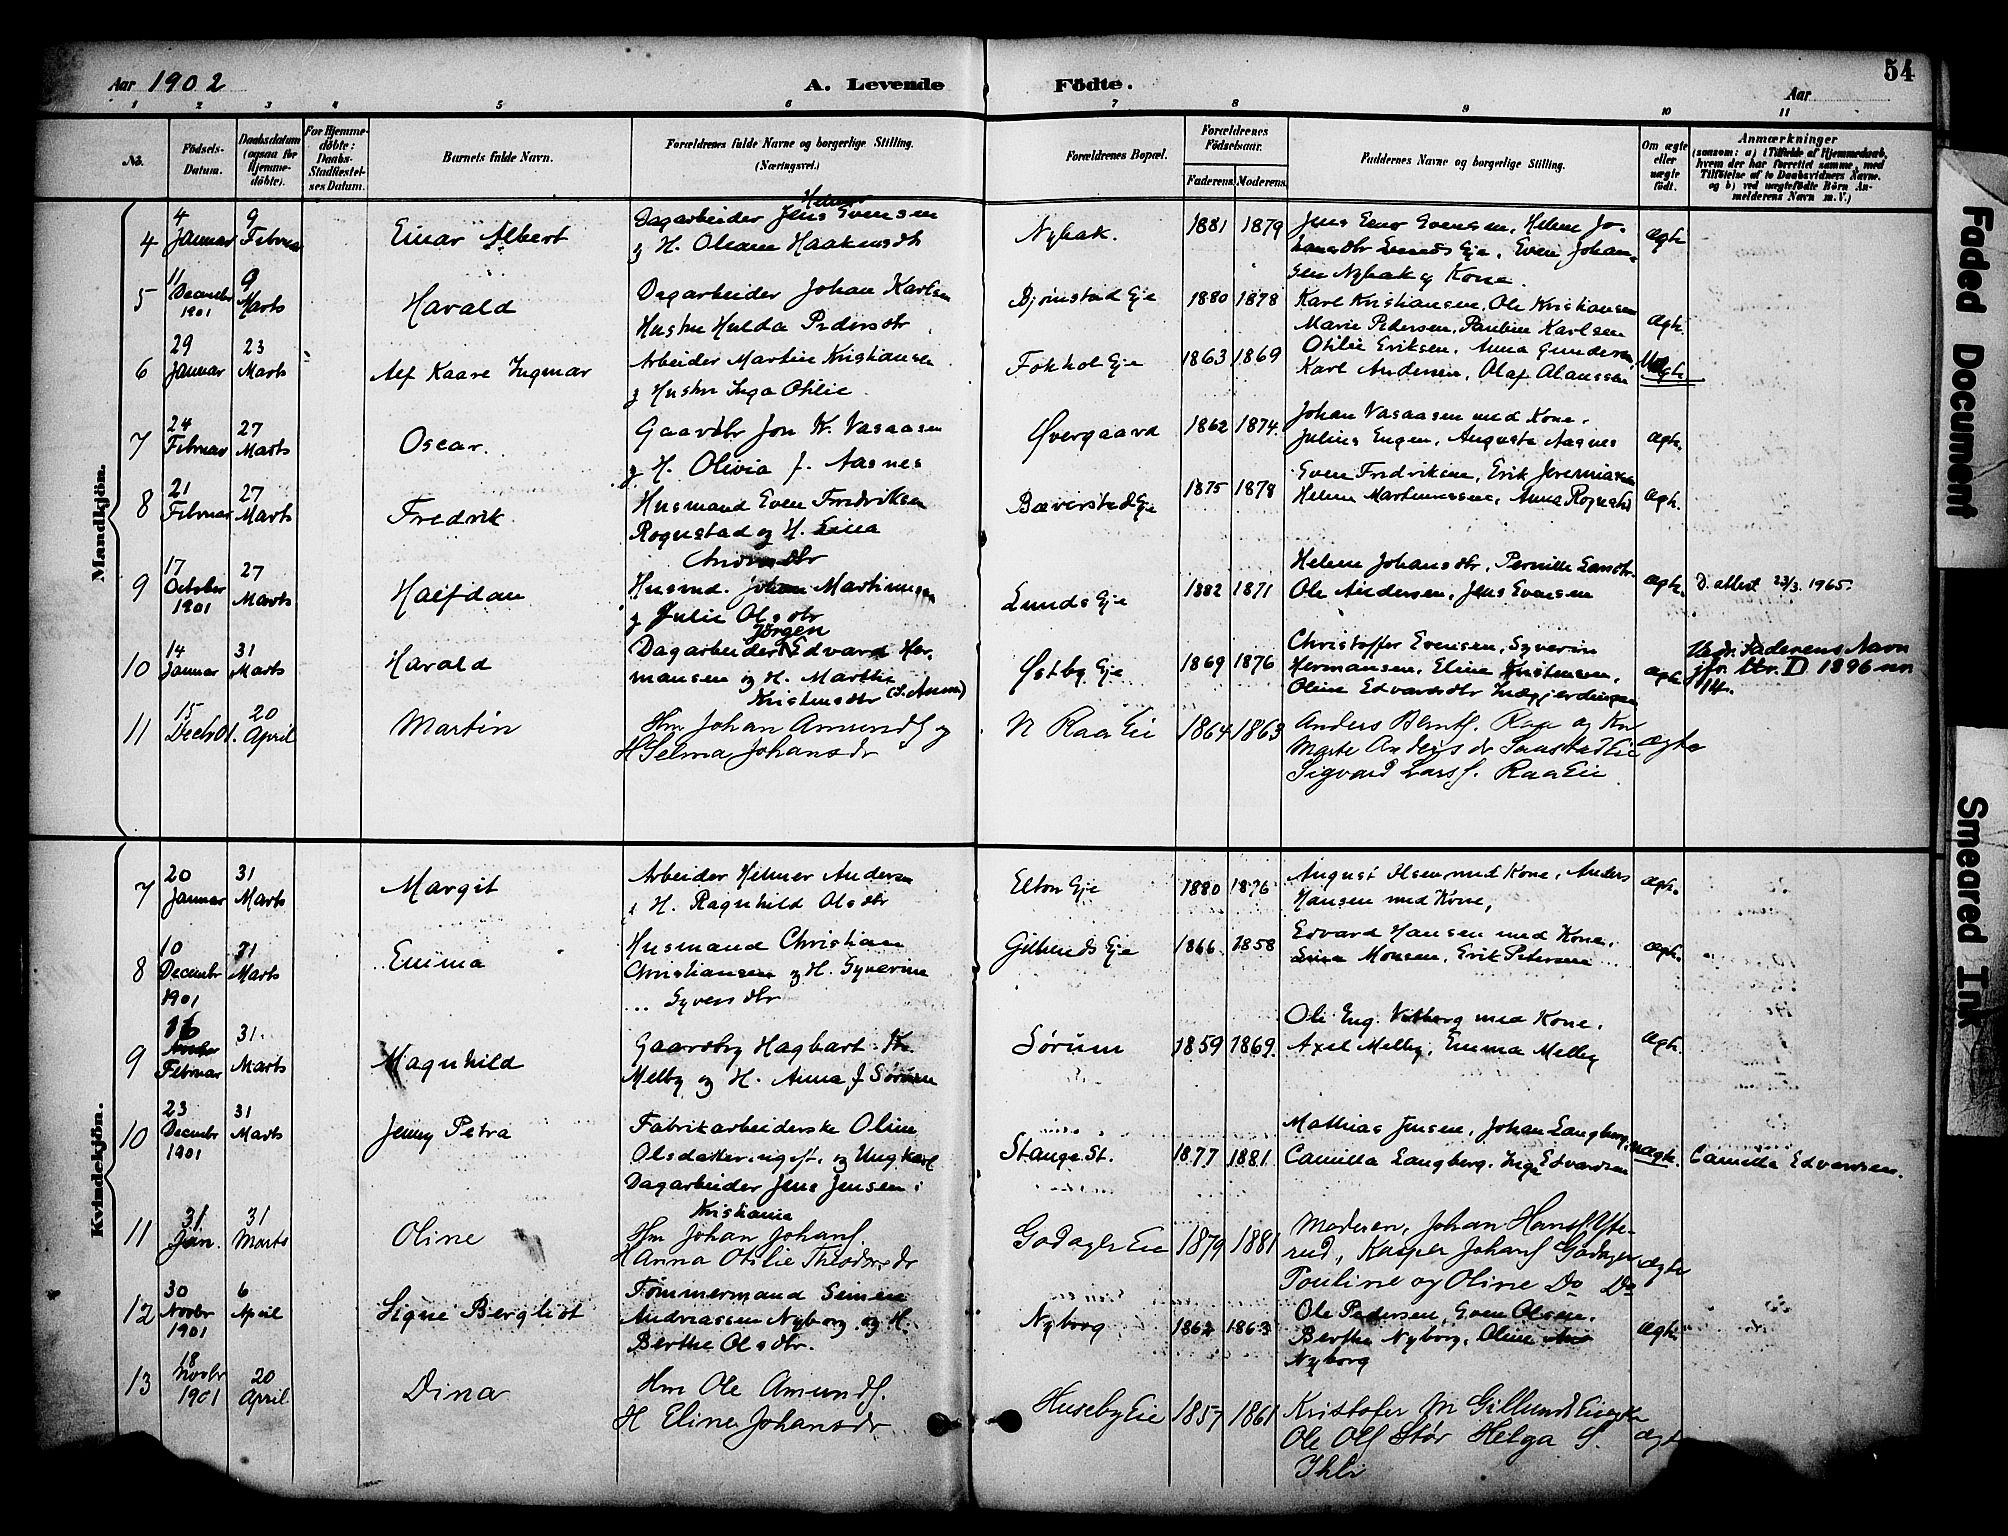 Aar 1902
A. Levende Födte.
54
Aar
1 2 3 4 5 6 7 8 9 10 11
No.
Födsels-Datum.
Daabsdatum (ogsaa for Hjemme-döbte).
For Hjemme-döbte: Daabs-Stadfæstel-ses Datum.
Barnets fulde Navn.
Forældrenes fulde Navne og borgerlige Stilling. (Næringsvei.)
Forældrenes Bopæl.
Forældrenes Födselsaar.
Faderens. Moderens.
Faddernes Navne og borgerlige Stilling.
Om ægte eller uægte födt.
Anmærkninger
(saasom: a) i Tilfælde af Hjemmedaab, hvem der har forrettet samme, med Tilföielse af to Daabsvidners Navne, og b) ved uægtefödte Börn Anmelderens Navn m. V.)
Mandkjön.
4
4 Januar
9 Februar
Einar Albert
Dagarbeider Jens Evensen
og H. Oleane Haakensdtr
Nybak.
1881 1879
Evensen, Helene Jo-
Lunds Eje, Even Johan-
sen Nybak og Kone.
ægte
5
11 Decembr 1901
9 Marts
Harald
Dagarbeider Johan Karlsen
Hustru Hulda Pedersdtr
Bjørnstad Eje
1880 1878
Karl Kristiansen, Ole Kristiansen
Marie Pedersen, Pauline Karlsen
ægte.
6
29 Januar
23 Marts
Alf Kaare Ingmar
Arbeider Martin Kristiansen
og Hustru Inga Otilie
Fokhol Eje
1863 1869
Otilie Eriksen, Anna Gundersen,
Karl Andersen, Olaf Olaussen
7
24 Februar
27 Marts
Oscar.
Gaardbr Jon K. Vasaasen
og H. Olivia f. Aasnes
Øvergaard
1862 1874.
Johan Vasaasen med Kone.
Julius Engen, Augusta Aasnes
ægte.
8
21 Februar
27 Marts
Fredrik
Husmand Even Fredriksen
Rognstad og H. Lina
Andersdtr
Bæverstad Eje
1875 1878
Even Fredriksen, Erik Jeremiasen
Helene Martinussen, Anna Rognstad
ægte.
9
17 October 1901
27 Marts
Halfdan
Husmd. Johan Martinusen
og Julie Olsdtr
Lunds Eje
1882 1871
Helene Johansdtr, Pernille Larsdtr.
Ole Andersen, Jens Evensen
ægte.
D. attest 23/3 1965.
10
14 Januar
31 Marts
Harald
Jørgen
Dagarbeider Edvard Her-
mansen og H. Marthe
Kristensdtr
Østby Eje
1869 1876
Christoffer Evensen, Syverin
Hermansen, Eline Kristensen,
Oline Edvardsdtr
ægte
Vedr. Faderens Navn
jfr. ltr. D 1896 nr.
14.
11
15 Decbr 01.
20 April
Martin
Hm Johan Amundsf og
H Selma Johansdr
N Raa Eie
1864 1863
Anders Berntsf. Raa og Kn
Marte Andersdr Saastad Eie
Sigvard Larsf. Raa Eie
ægte
Kvindekjön.
7
20 Januar
31 Marts
Margit
Arbeider Helmer Andersen
og H. Ragnhild Olsdtr
Elton Eje
1880 1876
August Olsen med Kone, Anders
Hansen med Kone,
ægte.
8
10 Decembr 1901
31 Marts
Emma
Husmand Christian
Christiansen og H. Syverine
Syversdtr
Gillunds Eje
1866 1858
Edvard Hansen med Kone,
Lina Monsen, Erik Petersen
ægte.
9
16 Februar
31 Marts
Magnhild
Gaardbr Hagbart Kr.
Melby og H. Anna J. Sørum
Sørum
1859 1869.
Ole Eng. Vilberg med Kone.
Axel Melby, Emma Melby
ægte.
10
23 Decembr 1901
31 Marts
Jenny Petra
Fabrikarbeiderske Oline
Olsdatter, ugift, og Ungkarl
Dagarbeider Jens Jensen:
Kristiania
Stange St.
1877 1881
Mathias Jensen, Johan Langberg,
Camilla Langberg, Inga Edvardsen
uægte.
Camilla Edvardsen.
11
31 Jan.
31 Marts
Oline
Hm Johan Johansf.
Hanna Otilie Theodorsdr
Godager Eie
1879 1881
Moderen, Johan Hansf. Yste-
rud, Kasper Johansf Godager
Pouline og Oline Do Do
ægte
12
30 Novbr 1901
6 April
Signe Bergliot
Tømmermand Simen
Andreassen Nyborg og H.
Berthe Olsdtr.
Nyborg
1862 1863
Ole Pedersen, Even Olsen.
Berthe Nyborg, Oline
Nyborg
ægte
13
18 Novbr 1901
20 April
Dina
Hm Ole Amundsf.
H Eline Johansdr
Huseby Eie
1857 1861
Kristofer M Gillund Eie
Ole Olsf Stør Helga S.
Ihle
ægte
Faded Document
Smeared Ink